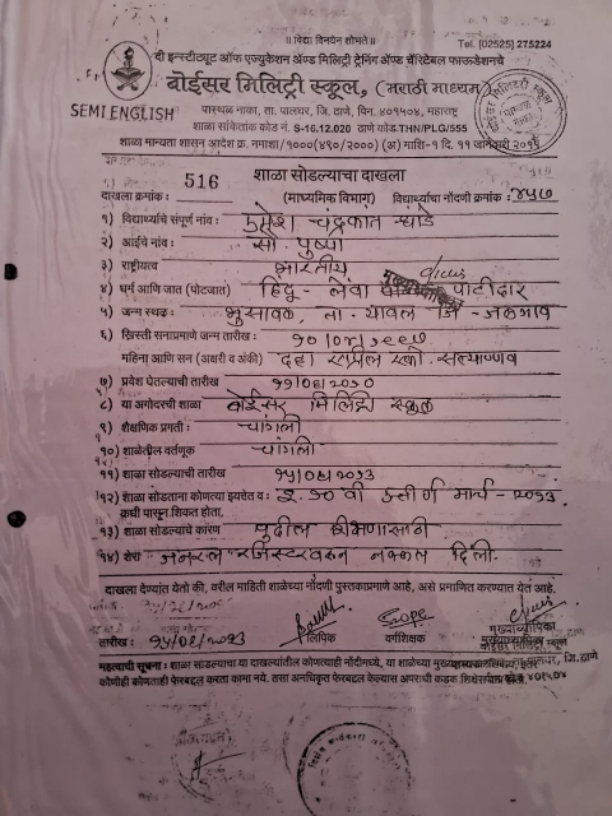 ॥ विद्या विनयेन शोभते ॥
Tel. [02525] 275224
दी इन्स्टीट्यूट ऑफ एज्युकेशन ॲण्ड मिलिट्री ट्रेनिंग ॲण्ड चॅरिटेबल फाऊंडेशनचे
बोईसर मिलिट्री स्कूल, (मराठी माध्यम)
SEMI ENGLISH
पास्थळ नाका, ता. पालघर, जि. ठाणे, पिन. ४०१५०४, महाराष्ट्र
शाळा सांकेतांक कोड नं. S-16.12.020 ठाणे कोड THN/PLG/555
शाळा मान्यता शासन आदेश क्र. नमाशा/१०००(४९०/२०००) (अ) माशि-१ दि. ११
516 शाळा सोडल्याचा दाखला
दाखला क्रमांक : (माध्यमिक विभाग) विद्यार्थ्याचा नोंदणी क्रमांक : ४५७
१) विद्यार्थ्याचे संपूर्ण नांव : चंद्रकांत
२) आईचे नांव : सौ. पुष्पा
३) राष्ट्रीयत्व भारतीय
४) धर्म आणि जात (पोटजात) हिंदू - लेवा पाटीदार
५) जन्म स्थळ : भुसावळ, ता. यावल जि - जळगाव
६) ख्रिस्ती सनाप्रमाणे जन्म तारीख : १०/०४/१९९७
महिना आणि सन (अक्षरी व अंकी) दहा एप्रिल एकी. सत्याण्णव
७) प्रवेश घेतल्याची तारीख ११/०६/२०१०
८) या अगोदरची शाळा बोईसर मिलिट्री स्कूल
९) शैक्षणिक प्रगती : चांगली
१०) शाळेतील वर्तणूक चांगली
११) शाळा सोडल्याची तारीख १५/०६/२०१३
१२) शाळा सोडताना कोणत्या इयत्तेत व : इ. १० वी उत्तीर्ण मार्च - २०१३.
कधी पासून शिकत होता.
१३) शाळा सोडल्याचे कारण पुढील शिक्षणासाठी
१४) शेरा जनरल रजिस्टरवरून नक्कल दिली.
दाखला देण्यांत येतो की, वरील माहिती शाळेच्या नोंदणी पुस्तकाप्रमाणे आहे, असे प्रमाणित करण्यात येत आहे.
तारीख : १५/०६/२०१३ लिपिक वर्गशिक्षक मुख्याध्यापिका
महत्वाची सूचना : शाळा सोडल्याचा या दाखल्यांतील कोणत्याही नोंदीमध्ये, या शाळेच्या
कोणीही कोणताही फेरबदल करता कामा नये. तसा अनधिकृत फेरबदल केल्यास अपराधी कडक